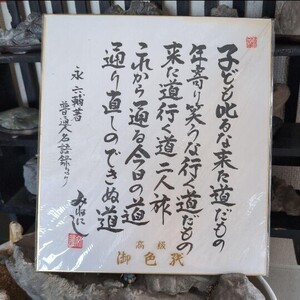 子ども叱るな来た道だもの
年寄り笑うな行く道だもの
来た道行く道二人旅
これから通る今日の道
通り直しのできぬ道
永六輔著
普通人名語録より
高級
御色紙